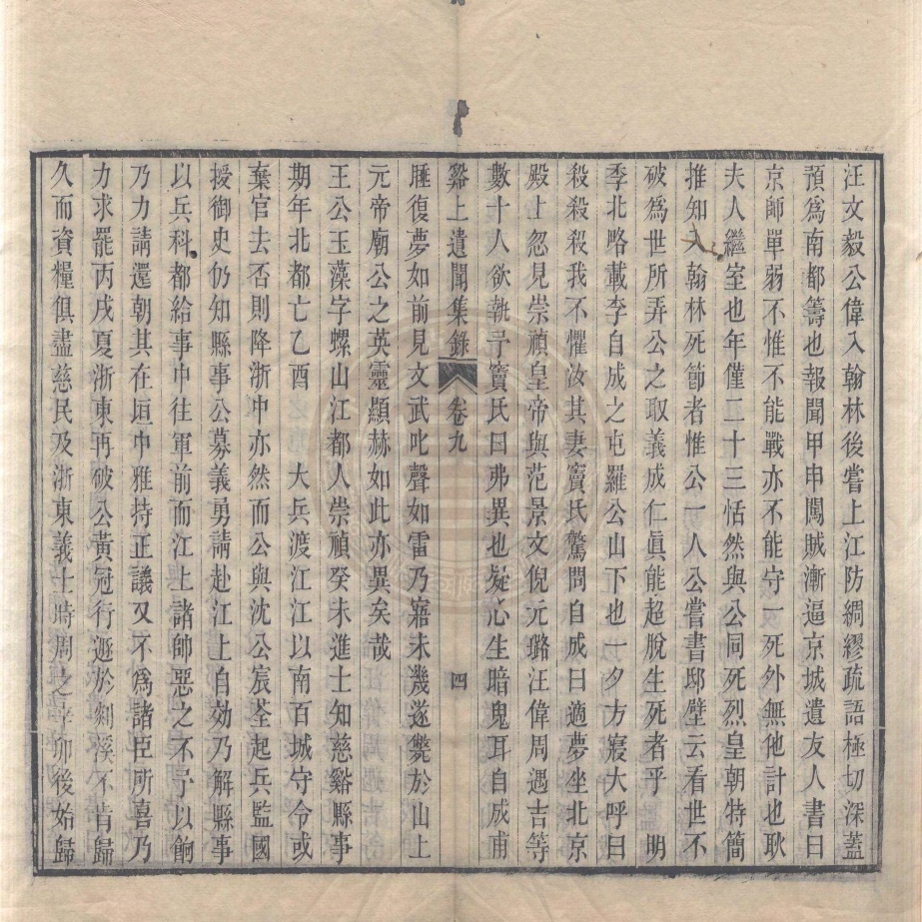 汪文毅公偉入翰林後嘗上江防綢繆疏語極切深蓋
預爲南都籌也報聞甲申闖賊漸逼京城遺友人書曰
京師單弱不惟不能戰亦不能守一死外無他計也耿
夫人繼室也年僅二十三恬然與公同死烈皇朝特簡
推知入翰林死節者惟公一人公嘗書邸壁云看世不
破爲世所弄公之取義成仁眞能超脫生死者乎　明
季北略載李自成之屯羅公山下也一夕方寢大呼曰
殺殺殺我不懼汝其妻竇氏驚問自成曰適夢坐北京
殿上忽見崇禎皇帝與范景文倪元璐汪偉周遇吉等
數十人欲執予竇氏曰弗異也疑心生暗鬼耳自成甫
谿上遺聞集錄　卷九　四
睡復夢如前見文武叱聲如雷乃寤未幾遂斃於山上
元帝廟公之英靈顯赫如此亦異矣哉
王公玉藻字螺山江都人崇禎癸未進士知慈谿縣事
期年北都亡乙酉　大兵渡江江以南百城守令或
棄官去否則降浙中亦然而公與沈公宸荃起兵監國
授御史仍知縣事公募義勇請赴江上自効乃解縣事
以兵科都給事中往軍前而江上諸帥惡之不予以餉
乃力請還朝其在垣中雅持正議又不爲諸臣所喜乃
力求罷丙戌夏浙東再破公黃冠行遯於剡溪不肯歸
久而資糧俱盡慈民及浙東義士時周之辛卯後始歸